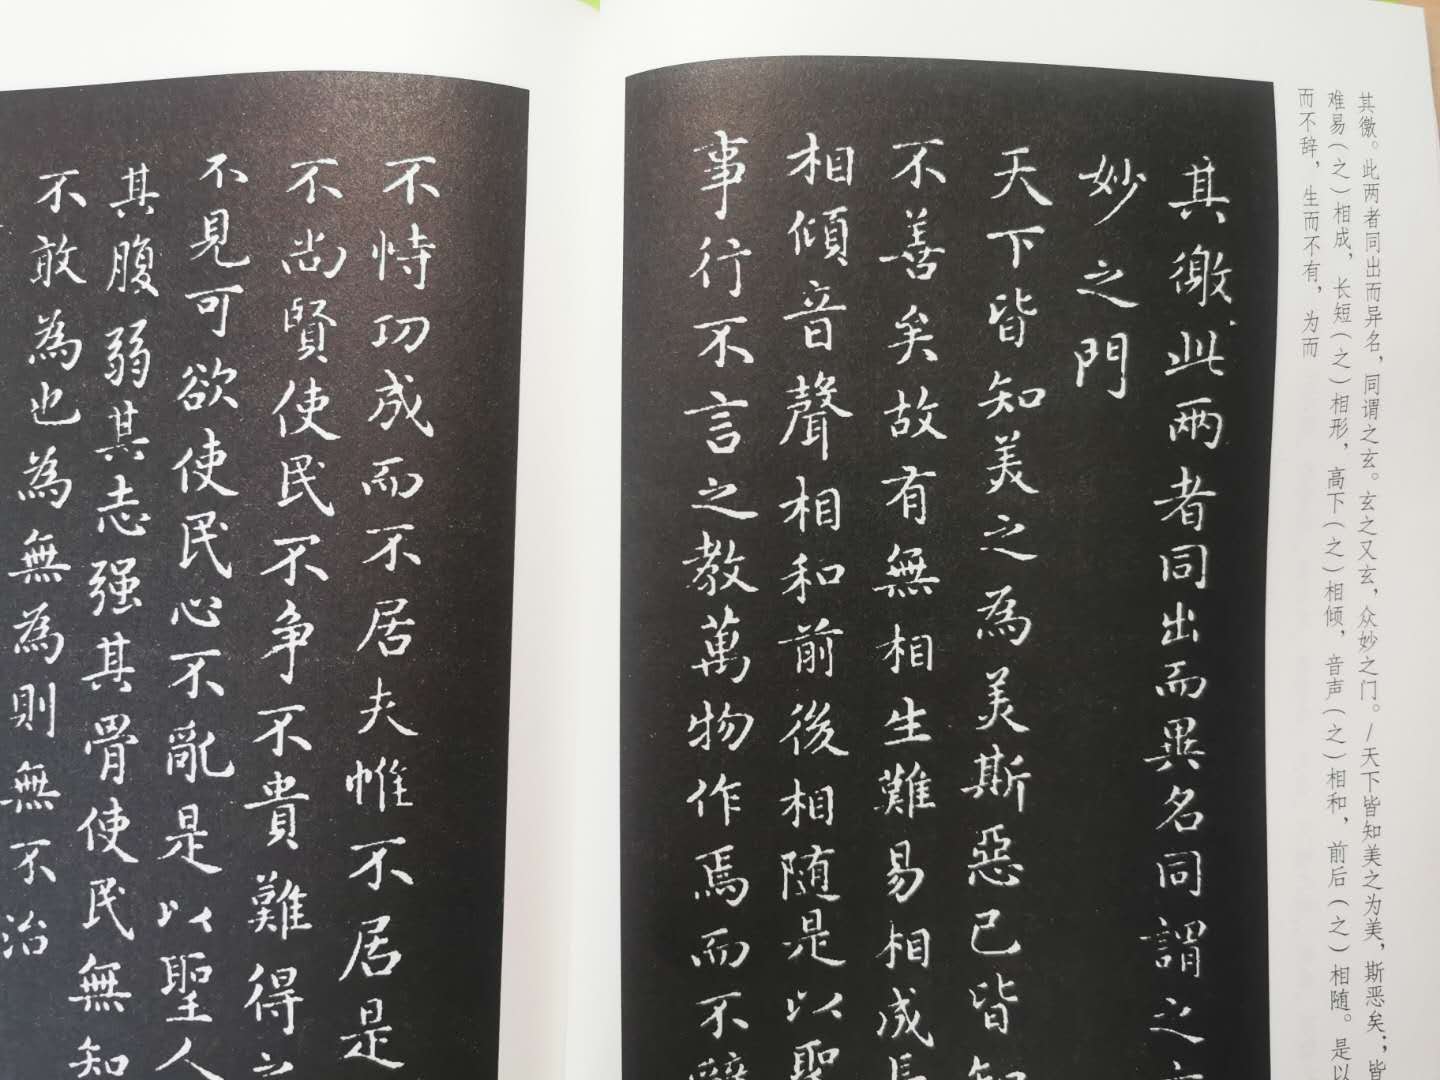 其徼。此两者同出而异名，同谓之玄。玄之又玄，众妙之门。/天下皆知美之为美，斯恶矣；皆
难易（之）相成，长短（之）相形，高下（之）相倾，音声（之）相和，前后（之）相随。是以
而不辞，生而不有，为而
其徼此兩者同出而異名同謂之
妙之門
天下皆知美之為美斯惡已皆知
不善矣故有無相生難易相成長
相傾音聲相和前後相随是以聖
事行不言之教萬物作焉而不辭
不恃功成而不居夫惟不居是
不尚賢使民不争不貴難得之
不見可欲使民心不亂是以聖人
其腹弱其志强其骨使民無知
不敢為也為無為則無不治